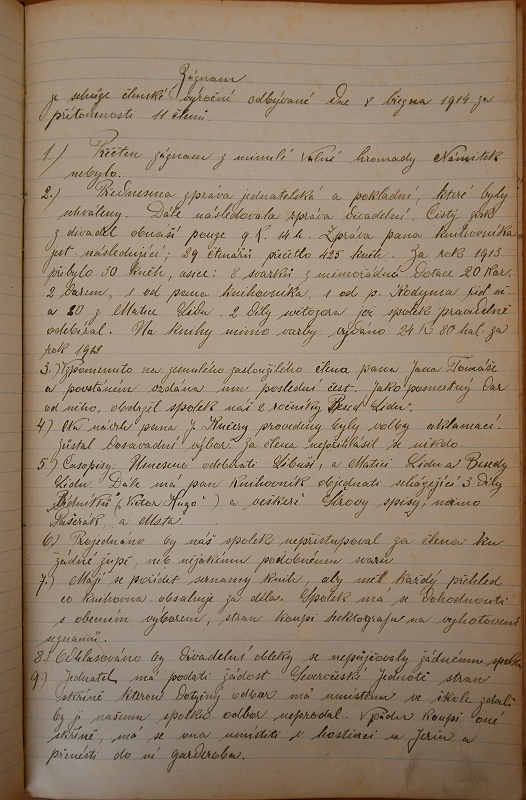 Záznam
ze schůze členské výroční odbývané dne 8 března 1914 za
přítomnosti 11 členů.
1.) Přečten záznam z minulé valné hromady. Námitek
nebylo.
2.) Přednesena zpráva jednatelská a pokladní, které byly
schváleny. Dále následovala zpráva divadelní. Čistý zisk
z divadel obnáší pouze 9 K. 14 h. Zpráva pana knihovníka
jest následující; 29 čtenářů přečtlo 425 knih. Za rok 1913
přibylo 30 knih, a sice: 8 svazků z mimořádné dotace 20 Kor.
2 darem, 1 od pana knihovníka, 1 od p. Kodyma
a 20 z Matice Lidu. 2 díly jež spolek pravidelně
odebíral. Na knihy mimo vazby vydáno 24 K 80 hal. za
rok
3.) Vzpomenuto na zemřelého zasloužilého člena pana Jana Tomáše
a povstáním vzdána mu poslední čest. Jako posmrtný dar
od něho, obdržel spolek náš 2 ročníky Besed Lidu.
4.) Na návrh pana J. Kučery provedeny byly volby aklamací.
Zůstal dosavadní výbor. Za člena nepřihlásil se nikdo.
5.) Časopisy: Usneseno odebírati Libuši, a Matici Lidu a Besedy
Lidu. Dále má pan knihovník objednati scházející 3 díly
(„Viktor Hugo“) a veškeré spisy, mimo
Pašerák, a Msta.
6.) Projednáno by náš spolek nepřistupoval za člena ku
žádné župě, neb nijakému podobnému svazu.
7.) Mají se poříditi seznamy knih, aby měl každý přehled
co knihovna obsahuje za díla. Spolek má se dohodnouti
s obecním výborem, stran koupi hektografu na vyhotovení
seznamů.
8.) Odhlasováno by divadelní obleky se nepůjčovaly žádnému spolku
9.) Jednatel má podati žádost Severočeské jednotě stran
skříně kterou dotyčný odbor má umístěnu ve škole zdali
by ji našemu spolku odbor neprodal. V pádu koupi oné
skříně, má se ona umístiti v hostinci u Jerin a
přenésti do ní garderoba.